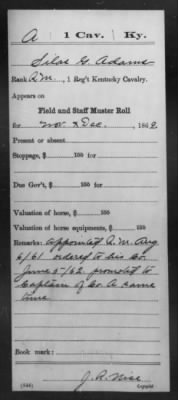 A | 1 Cav. | Ky.
Silas G. Adams
Rank Q.M., 1 Reg't Kentucky Cavalry.
Appears on
Field and Staff Muster Roll
for Nov. & Dec., 186 2.
Present or absent
Stoppage, $ 100 for
Due Gov't, $ 100 for
Valuation of horse, $ 100
Valuation of horse equipments, $ 100
Remarks: Appointed Q.M. Aug
6/61 ordered to his Co.
June 5/62 promoted to
Captain of Co. A same
time
Book mark:
J. R. Wise
(546) Copyist.